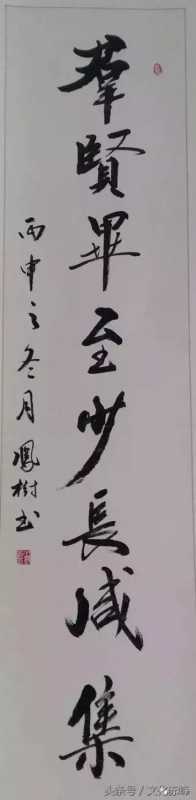 羣賢畢至少長咸集
丙申之冬月鳳樹书
头条号／文化新峰